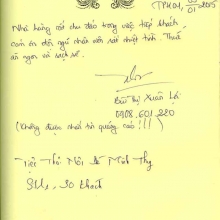 TPHCM, 01 2015
Nhà hàng rất chu đáo trong việc tiếp khách,
cám ơn đội ngũ nhân viên rất nhiệt tình. Thức
ăn ngon và sạch sẽ.
Bùi Thị Xuân Lợi
0908.601 220
(Không được nhắn tin quảng cáo !!!)
Tiệc Thôi Nôi Bé Minh Thy
30 khách